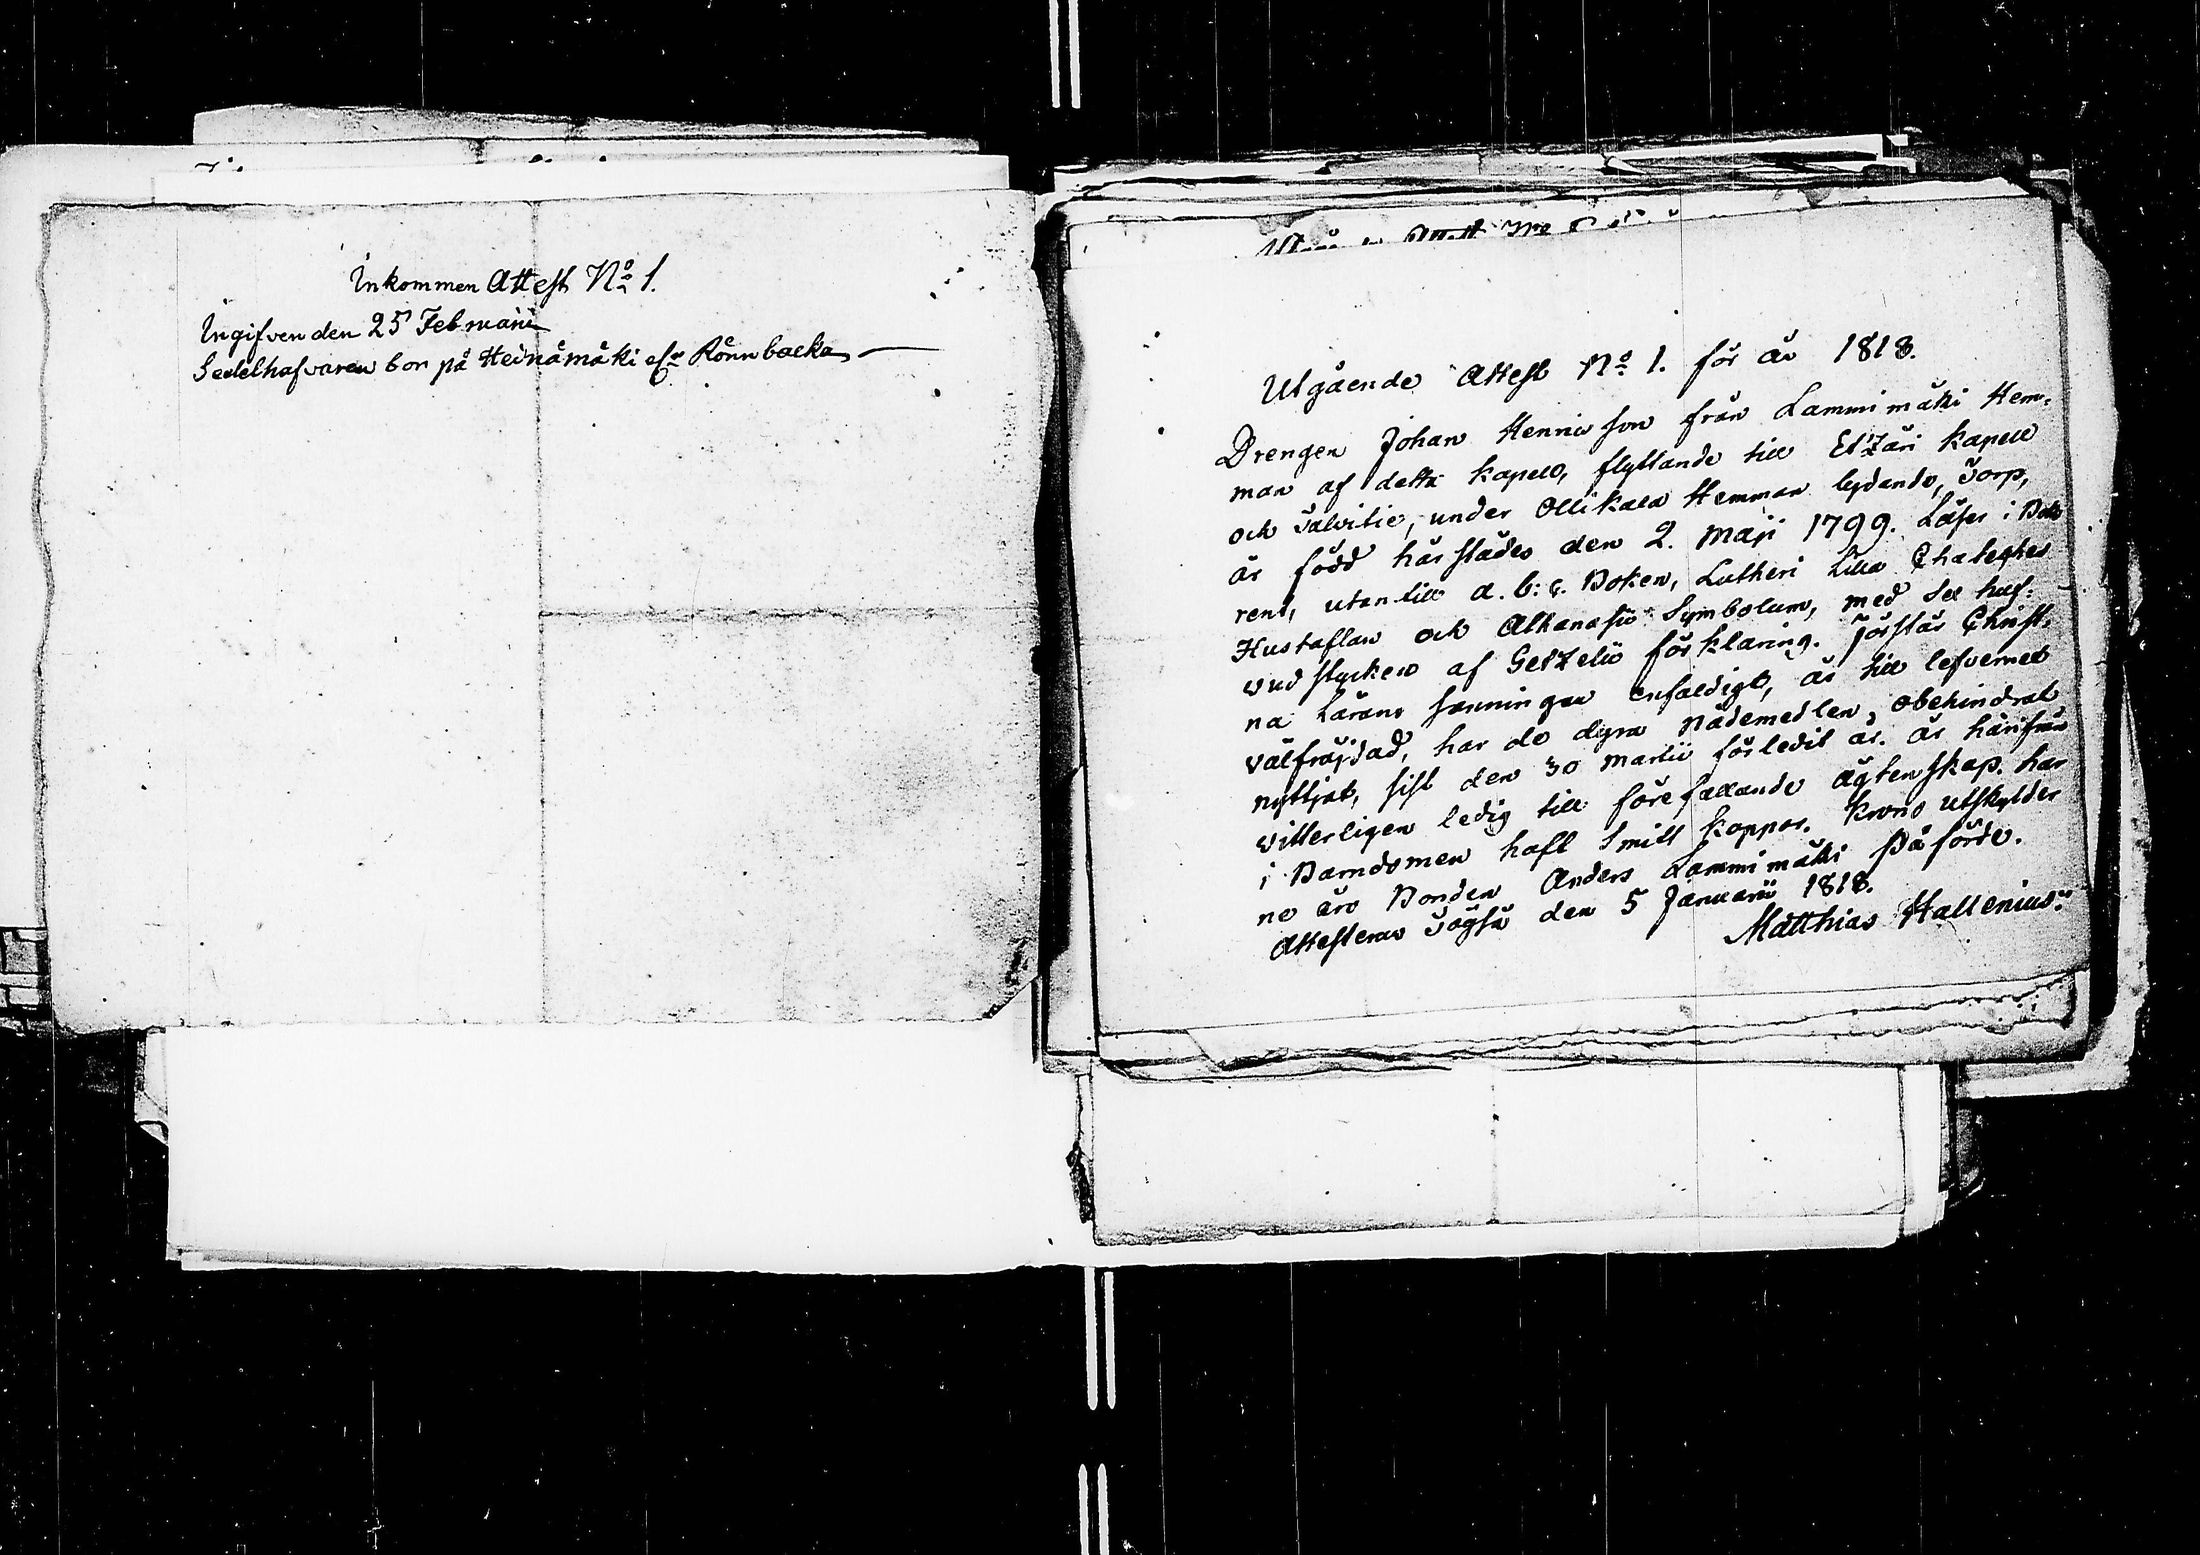 Inkommen Attest No 1.
Ingifven den 25 Februarii
Sedelhafvaren bor på Heinämäki el:r Rönnbacka
Utgående Attest No 1. för år 1818.
Drengen Johan Hennicsson från Lammimäki Hem-
man af detta Kapell, flyttande till Etzäri Kapell
och Valvitie, under Ollikala Hemman lydande, Torp,
är född härstädes den 2. Maji 1799. Läser i Bok
rent, utantill a. b. c. Boken, Lutheri Lilla Chateches
Hustaflan och Athanasii Symbolum, med Sex huf-
vud stycken af Getzelii förklaring. Förstår Christ-
na Lärans sanningar enfaldigt, är till lefvernet
välfräjdad, har de dyra Nådemedlen, obehindrat
nyttjat, sist den 30 Martii förledit år. är härifrån
vitterligen ledig till förefallande ägtenskap. har
i Barndomen haft Smitt koppor. Krono utskylder
ne äro Bonden Anders Lammimäki påförde.
Attesteras Töysä den 5 Januarii 1818.
Matthias Hallenius.